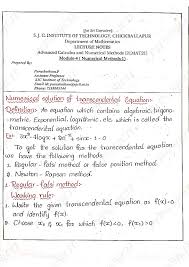 S.J.C. INSTITUTE OF TECHNOLOGY, CHICKBALLAPUR
Department of Mathematics
LECTURE NOTES
Advanced Calculus and Numerical Methods
Module-4: Numerical Methods-1
Prepared By:
Purushotham P
Assistant Professor
SJC Institute of Technology
Numerical solution of transcendental Equation:
Definition: An equation which contains algebraic, trigono-
metric, Exponential, logarithmic, etc. which is called the
transcendental equation.
To get the solution for the transcendental equation
we have the following methods
1. Regular - falsi method or false position method
2. Newton - Rapson method.
1. Regular - falsi method:
Working rule:
1. Write the given equation as f(x)=0
and identify f(x).